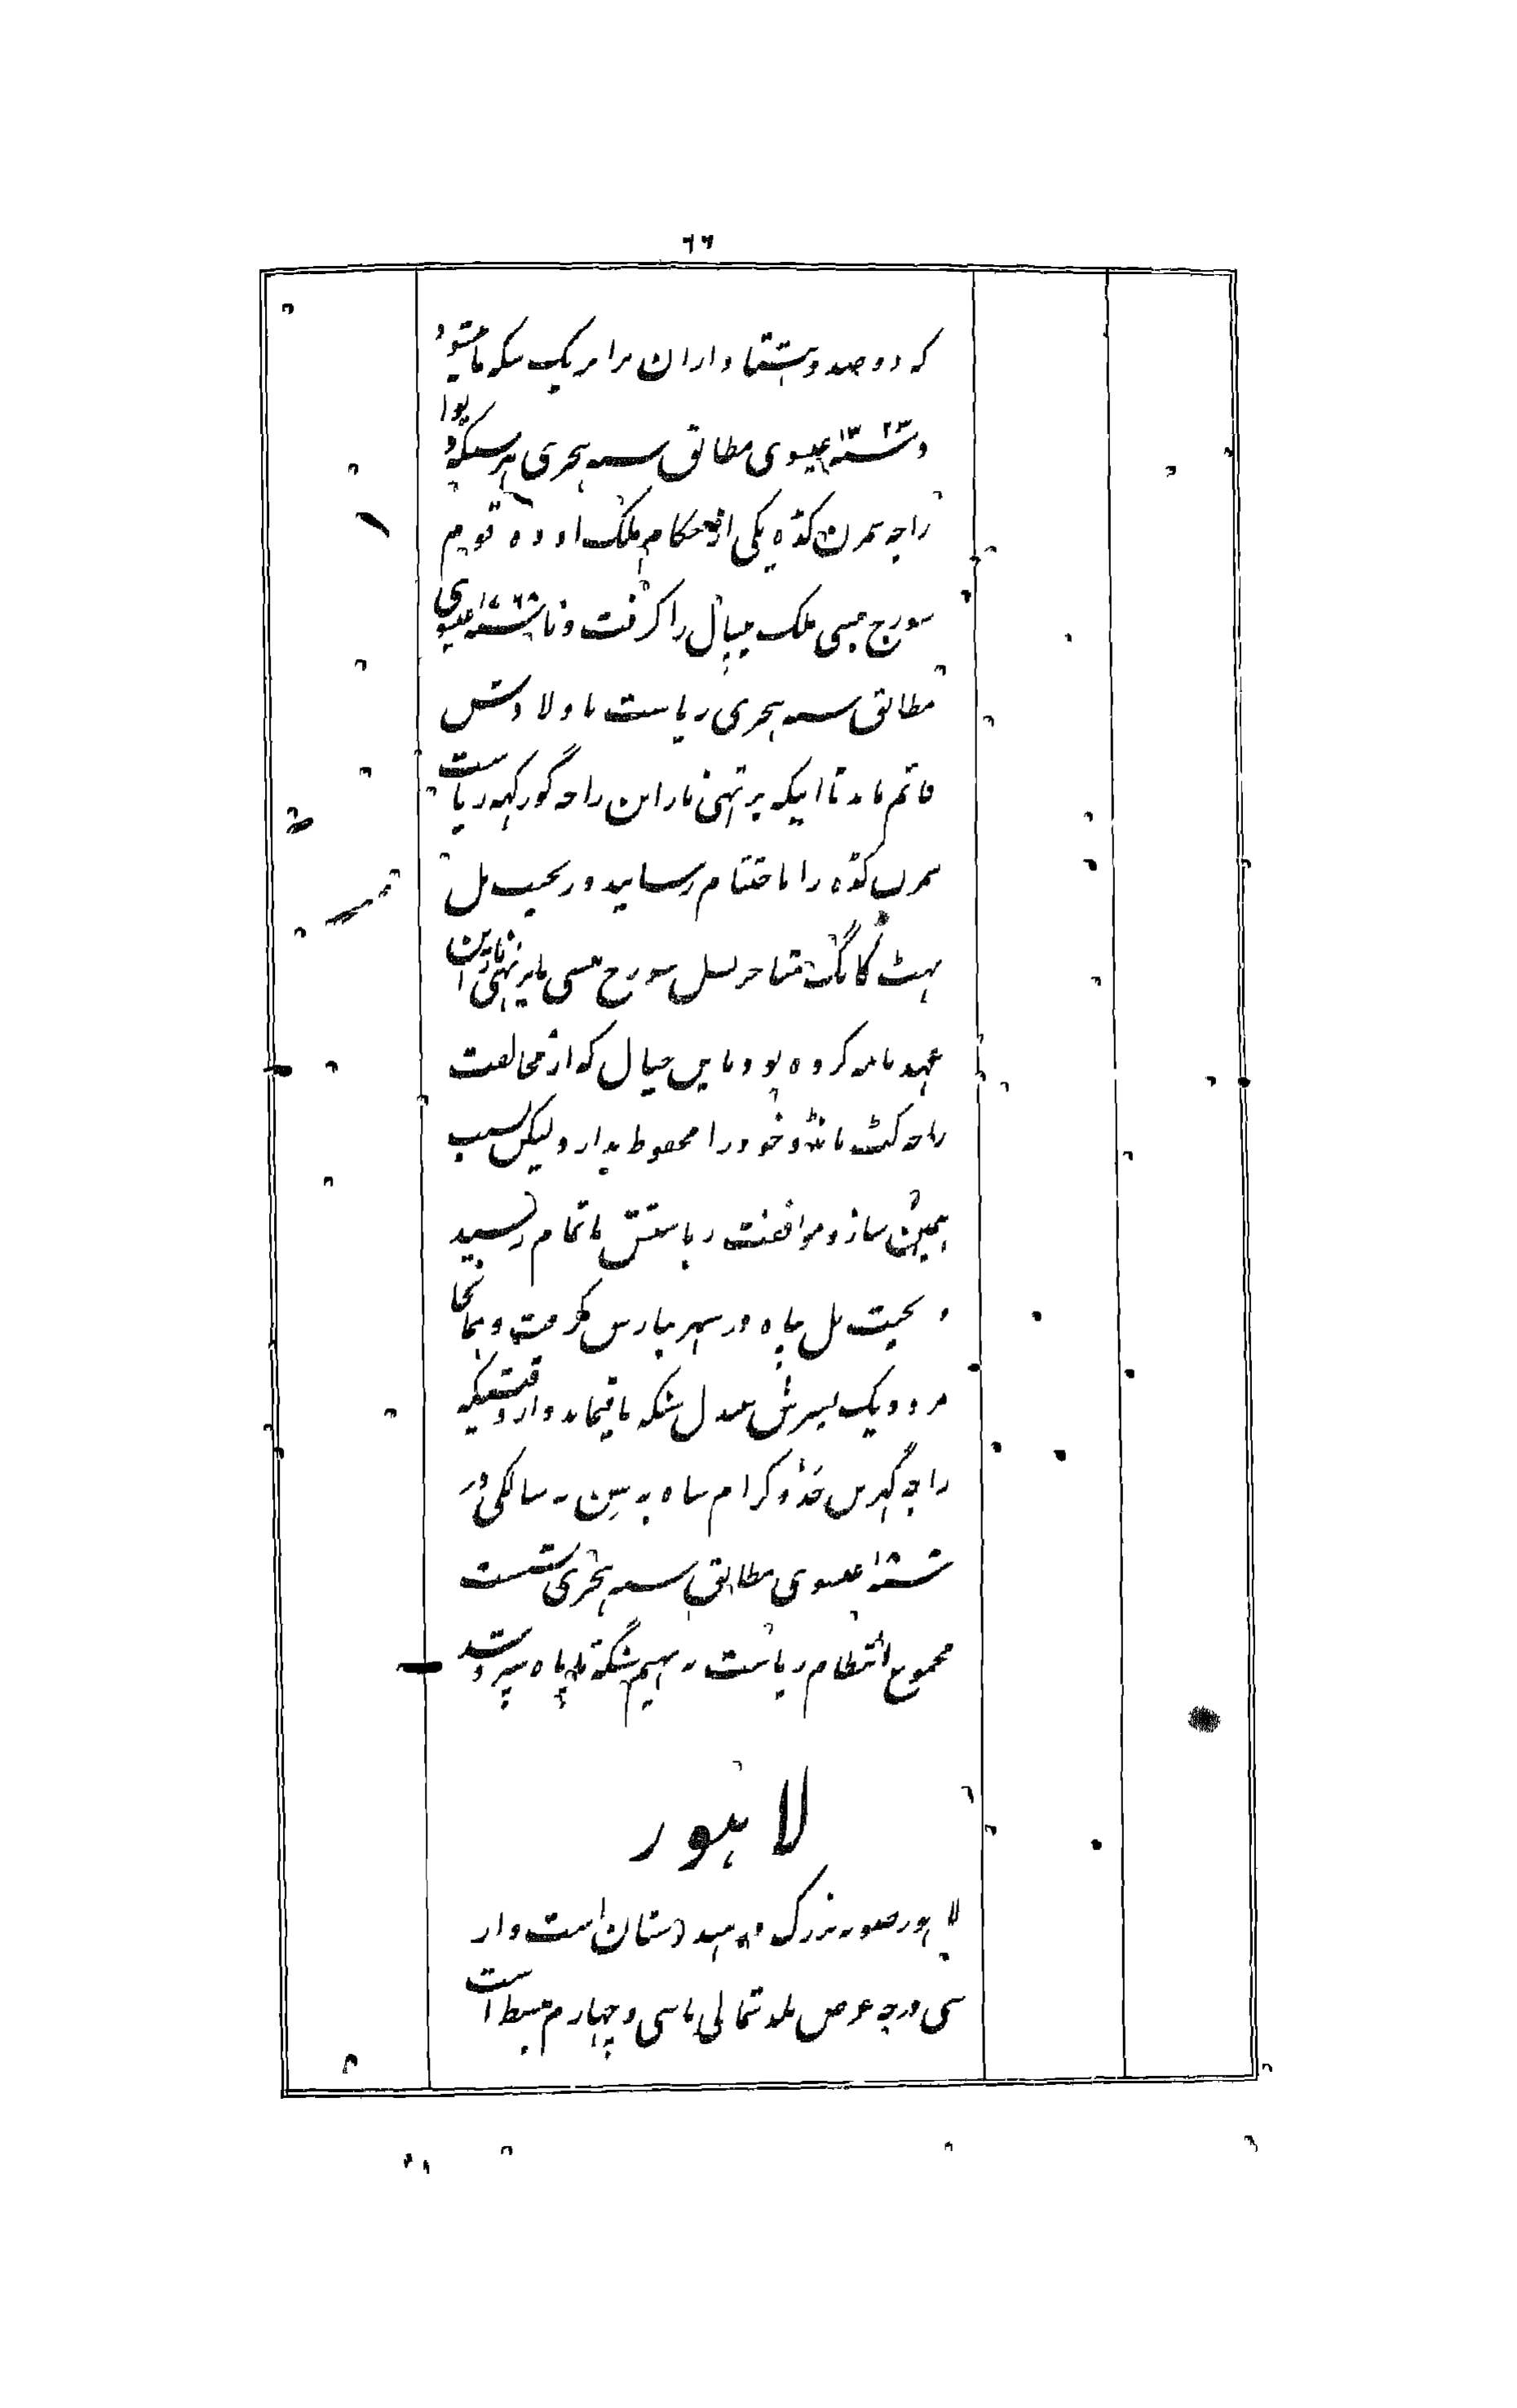 ٦٦
که دو صد و هشتاد ازان برابر یک سکه ما میشود
و سنه ١٣٢٣ عیسوی مطابق سنه هجری هر سنکه دیو
راجه سمرن کده یکی از حکام ملک اوده قوم
سورج بنسی ملک نیپال را گرفت و تا سنه ١٧٦٨ عیسوی
مطابق سنه هجری ریاست باولادش
قائم ماند تا اینکه پرتهی ناراین راجه گورکهه ریاست
سمرن کده را باختتام رسانید و رنجیت مل
بهٹ گانگ متاخر نسل سورج بنسی با پرتهی ناراین
عهدنامه کرده بود باین خیال که از مخالفت
راجه کٹ مانڈو خود را محفوظ بدارد لیکن بسبب
همین ساز و موافقت ریاستش باتمام رسید
و رنجیت مل پناه در شهر بنارس گرفت و همانجا
مرد و یک پسرش سنکه باقیماند و از وقتیکه
راجه کرام ساه به سن سه سالگی در
سنه عیسوی مطابق سنه هجری نشست
مجموع انتظام ریاست به بهیم سنگه تاپه سپرد شد
لاهور
لاهور صوبه بزرگ هندوستان است و از
سی درجه عرض بلد شمالی تا سی و چهارم منبسط است